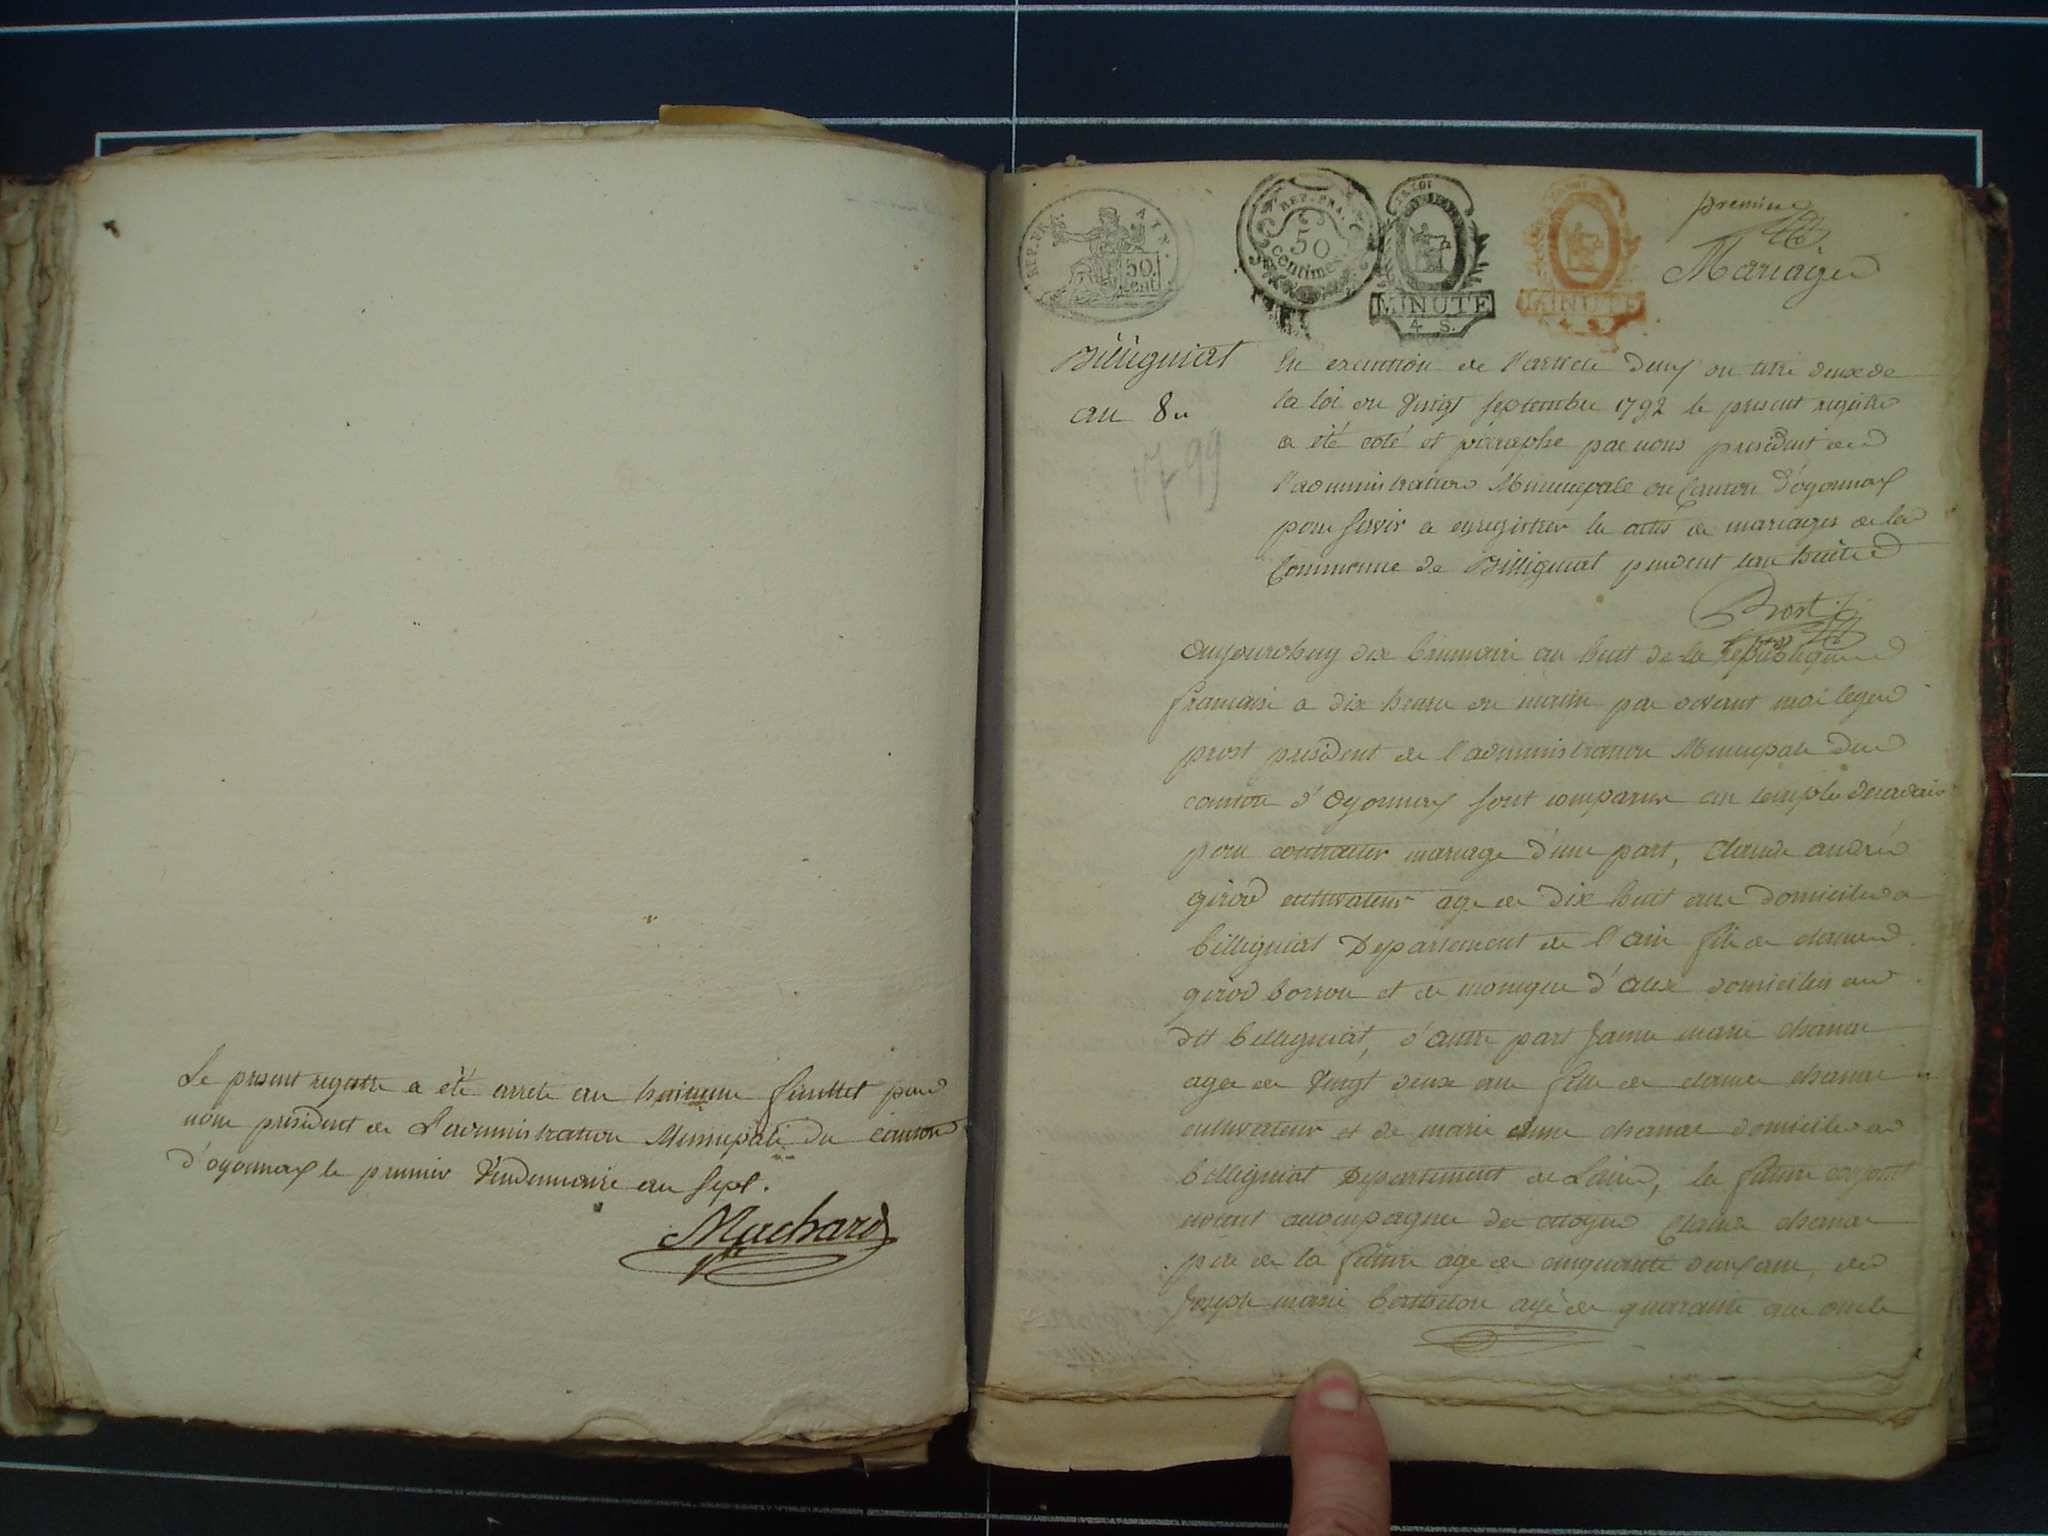 Le present registre a été arreté au huitieme feuillet par
nous président de L'administration Municipale du canton
d'oyonnax le premier Vendemiaire an sept.
Muchard
REP. FRA. AIN
50 cent
REP. FRA.
50
centimes
LA LOI
MINUTE
4. S.
MINUTE
4 S
premier
Mariages
Billigniat
an 8e
1799
En execution de l'article deux du titre deux de
la loi du Vingt septembre 1792 le present registre
a été coté et paraphe par nous president de
l'administration Municipale du Canton d'oyonnax
pour servir a enregistrer les actes de mariages de la
Commune de Billigniat pendent l'an huit
Prost
aujourdhuy dix brumaire an huit de la republique
francaise a dix heure du matin par devant moi
prost president de l'administration Municipale du
canton d'Oyonnax sont comparus au temple decadaire
pour contracter mariage d'une part, claude andré
girod cultivateur age de dix huit ans domicilie a
billigniat Departement de l'ain fils de claude
girod borron et de monique d'alex domicilies au
dit billigniat, d'autre part janne marie chanae
agee de Vingt deux ans fille de claude chanae
cultivateur et de marie anne chanae domicilies a
billigniat Departement de Lain, les futurs conjoints
etant accompagnes du citoyen Claude chanae
pere de la future age de cinquante deux ans, de
Joseph marie berthelon agé de quarante ans oncle